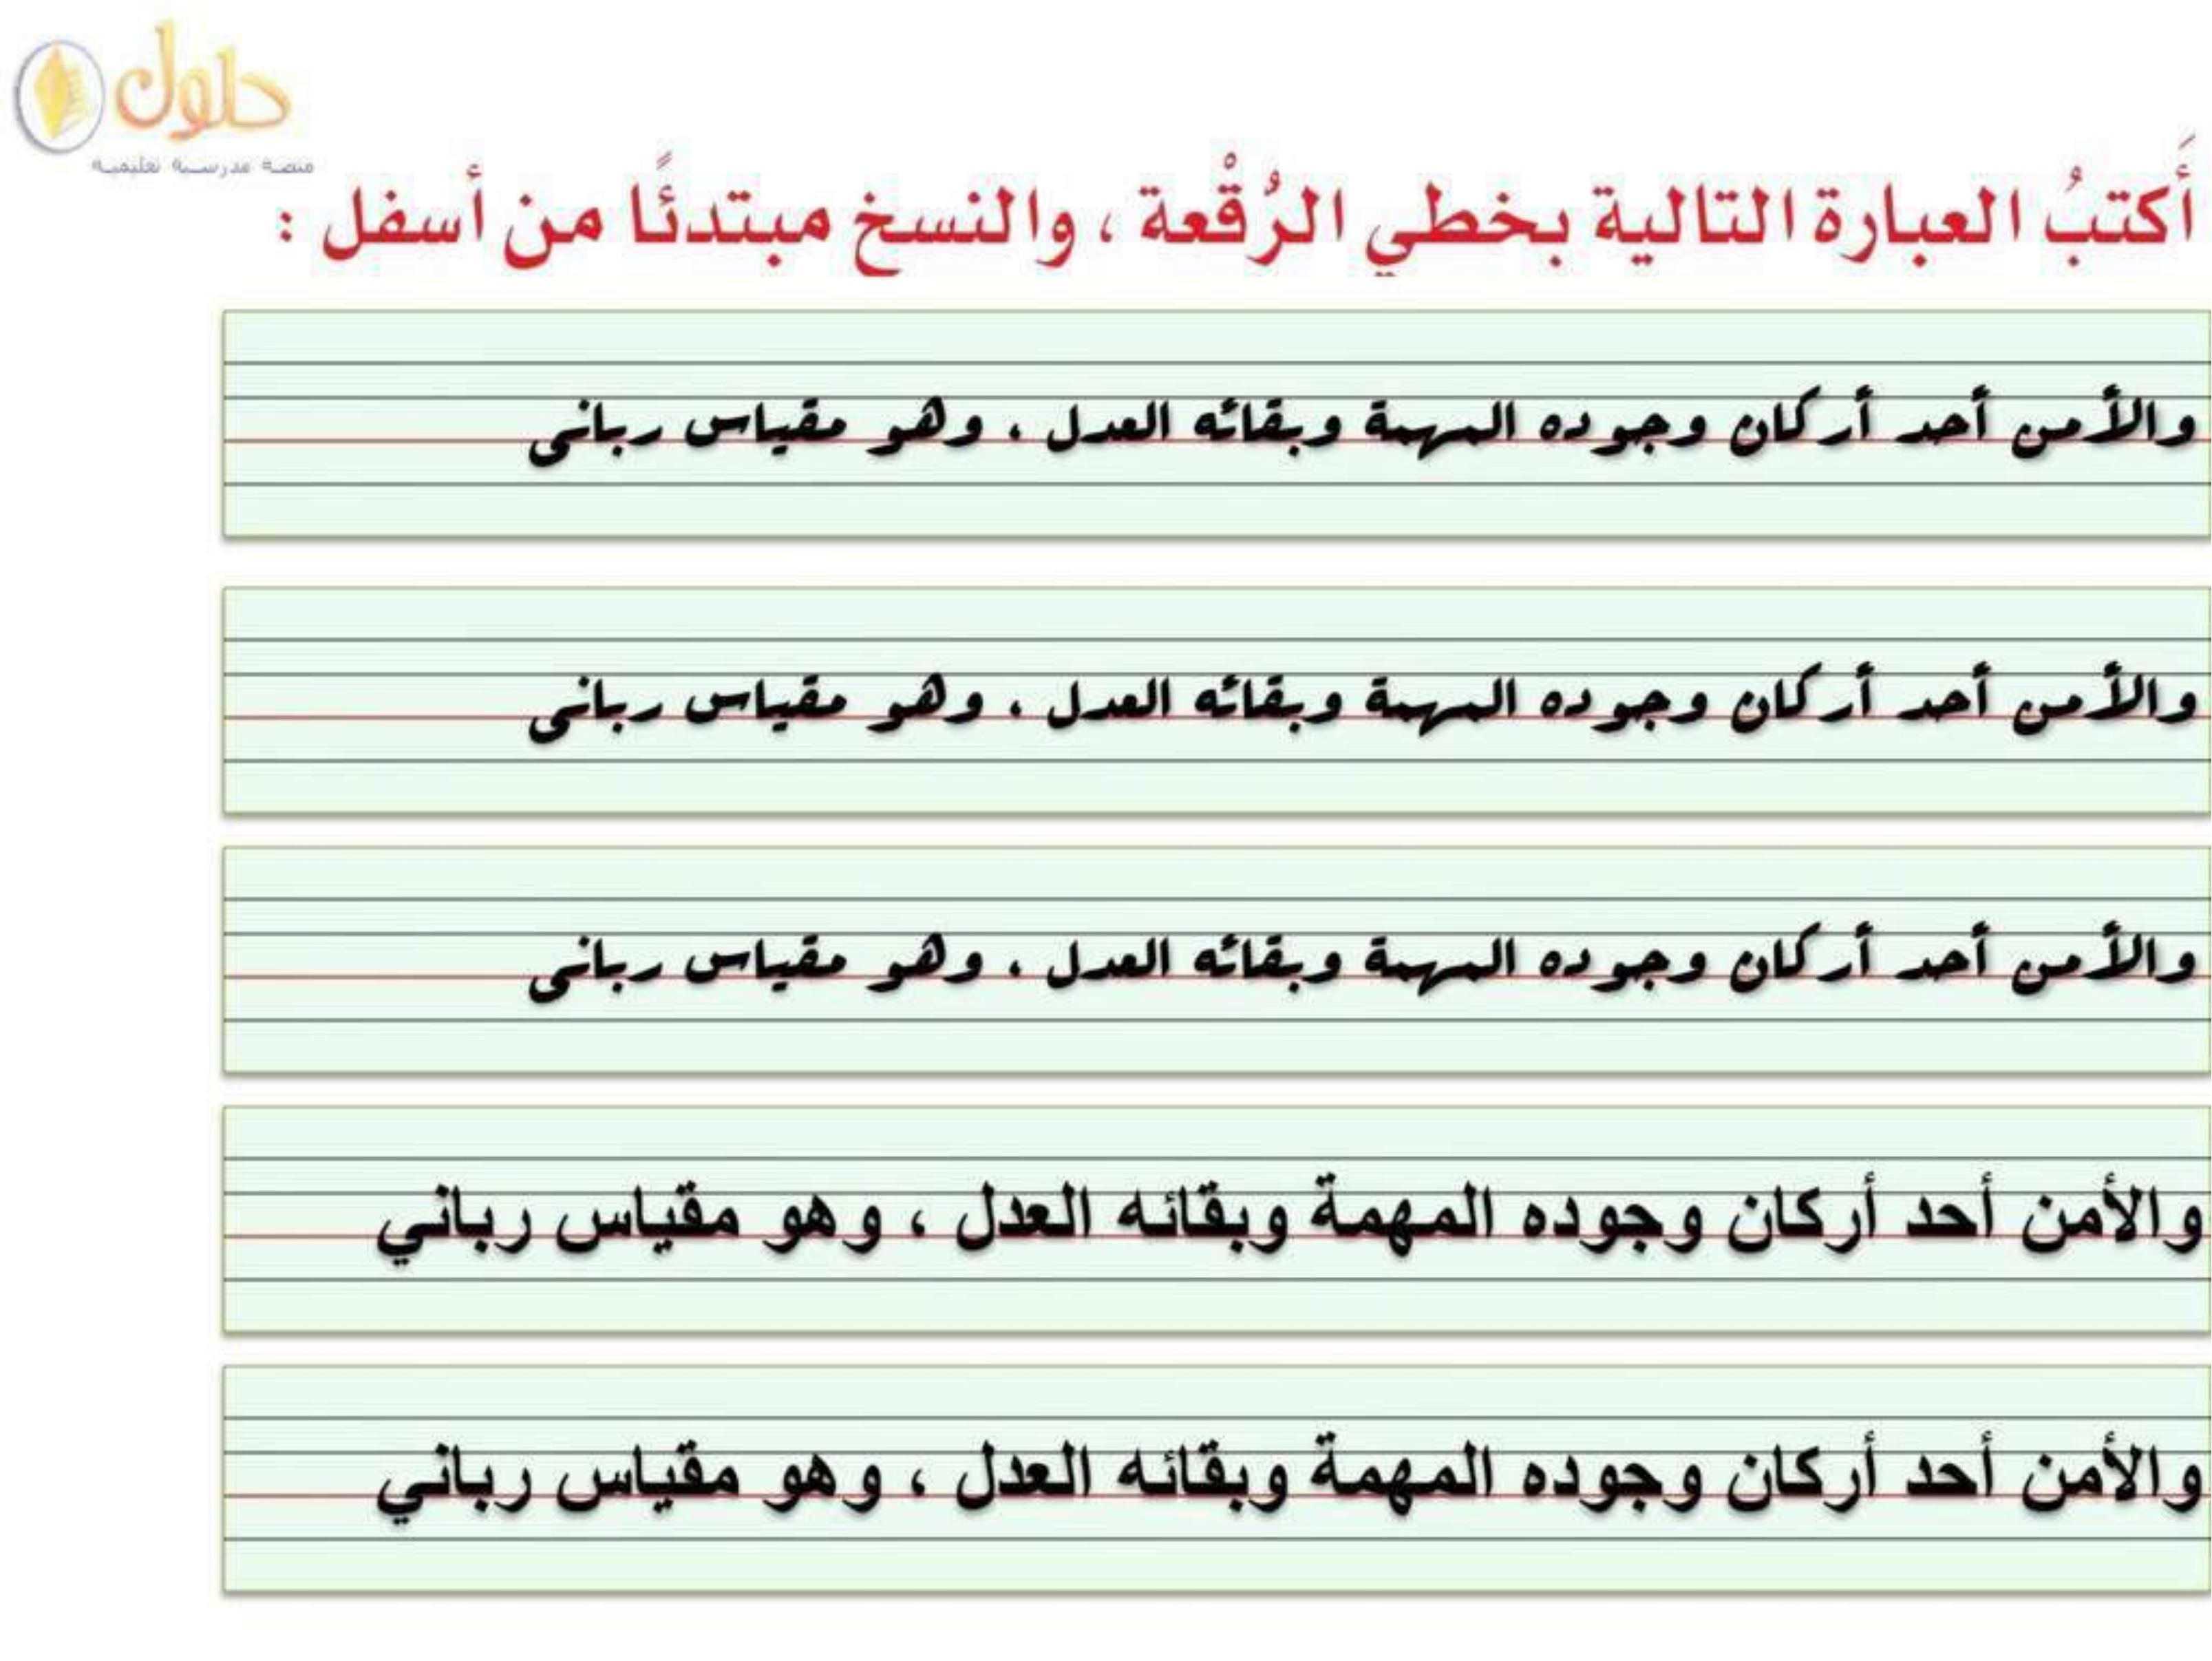 حلول
منصة مدرسية تعليمية
أَكتبُ العبارة التالية بخطي الرُقْعة ، والنسخ مبتدئًا من أسفل :
والأمن أحد أركان وجوده المهمة وبقائه العدل ، وهو مقياس ربانى
والأمن أحد أركان وجوده المهمة وبقائه العدل ، وهو مقياس ربانى
والأمن أحد أركان وجوده المهمة وبقائه العدل ، وهو مقياس ربانى
والأمن أحد أركان وجوده المهمة وبقائه العدل ، وهو مقياس رباني
والأمن أحد أركان وجوده المهمة وبقائه العدل ، وهو مقياس رباني